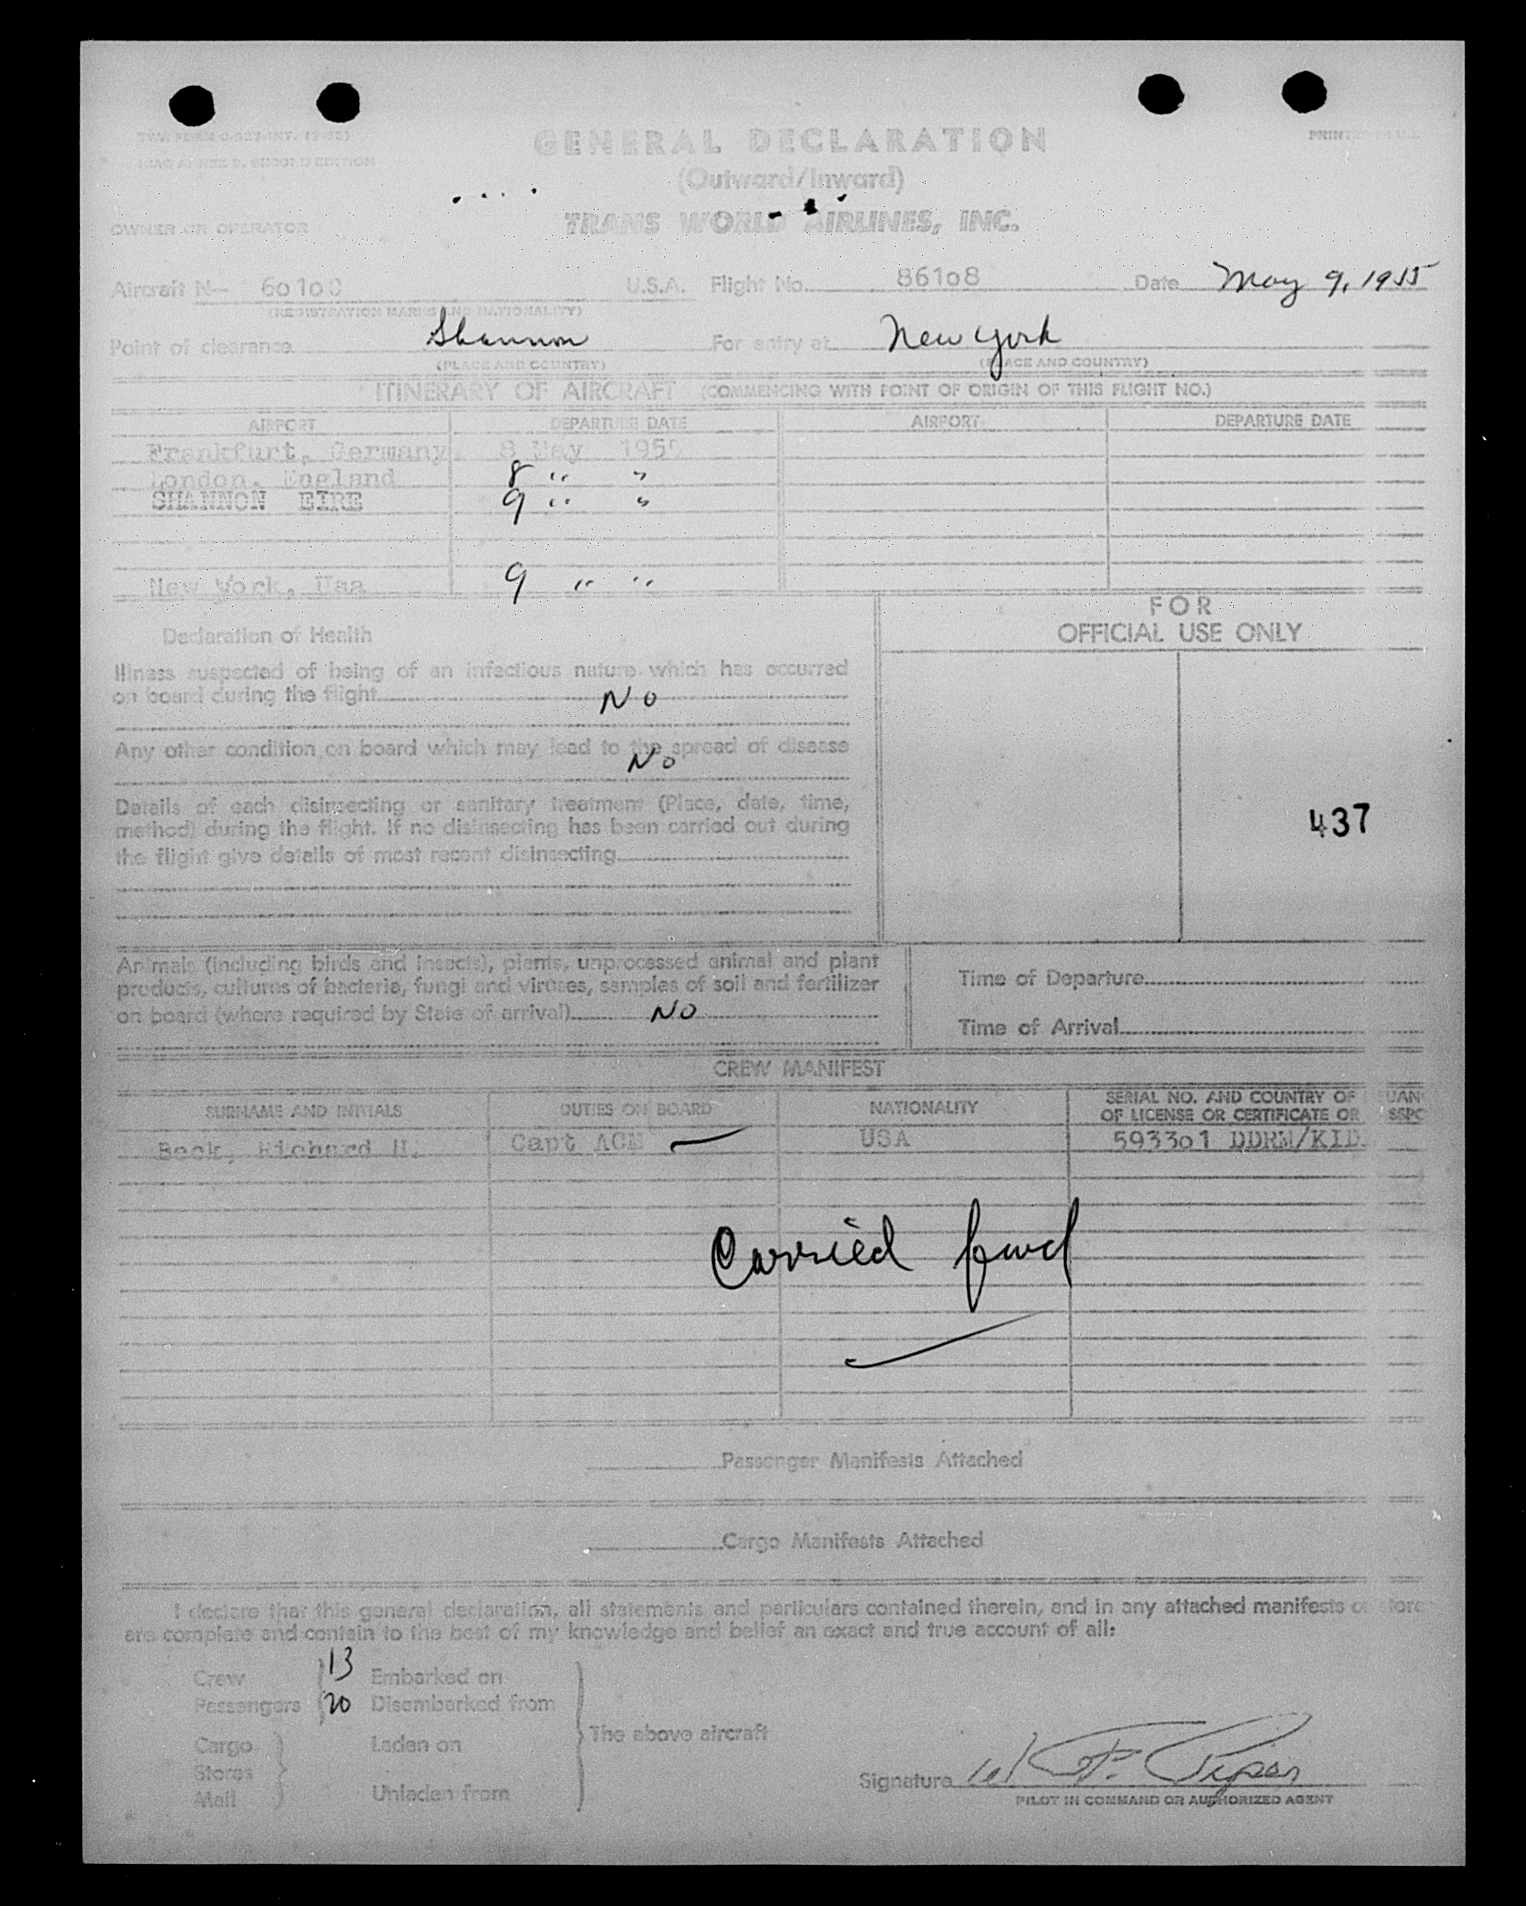 GENERAL DECLARATION
(Outward/Inward)
TRANS WORLD AIRLINES, INC.
OWNER OR OPERATOR
Aircraft N— U.S.A. Flight No. 86108 Date May 9, 1955
(REGISTRATION MARKS AND NATIONALITY)
Point of clearance Shannon For entry at New York
(PLACE AND COUNTRY) (PLACE AND COUNTRY)
ITINERARY OF AIRCRAFT (COMMENCING WITH POINT OF ORIGIN OF THIS FLIGHT NO.)
AIRPORT DEPARTURE DATE AIRPORT DEPARTURE DATE
Frankfurt, Germany 8 May 1955
London, England 8 " "
SHANNON EIRE 9 " "
New York, Usa 9 " "
FOR
OFFICIAL USE ONLY
Declaration of Health
Illness suspected of being of an infectious nature which has occurred
on board during the flight No
Any other condition on board which may lead to the spread of disease
No
Details of each disinsecting or sanitary treatment (Place, date, time,
method) during the flight. If no disinsecting has been carried out during
the flight give details of most recent disinsecting
437
Animals (including birds and insects), plants, unprocessed animal and plant
products, cultures of bacteria, fungi and viruses, samples of soil and fertilizer
on board (where required by State of arrival) No
Time of Departure
Time of Arrival
CREW MANIFEST
SURNAME AND INITIALS DUTIES ON BOARD NATIONALITY SERIAL NO. AND COUNTRY OF
OF LICENSE OR CERTIFICATE OR
Beck, Richard H. Capt ACM USA 593301 DDRM/KID
Carried fwd
Passenger Manifests Attached
Cargo Manifests Attached
I declare that this general declaration, all statements and particulars contained therein, and in any attached manifests or store
are complete and contain to the best of my knowledge and belief an exact and true account of all:
Crew 13 Embarked on
Passengers 20 Disembarked from
The above aircraft
Cargo Laden on
Stores
Mail Unladen from
Signature W P. Piper
PILOT IN COMMAND OR AUTHORIZED AGENT